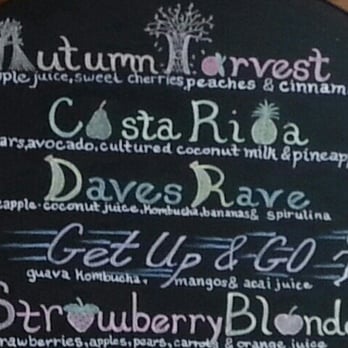 Autumn Harvest
ple juice, sweet cherries, peaches & cinnam
Costa Rica
ars, avocado, cultured coconut milk & pineap
Daves Rave
eapple-coconut juice, Kombucha, bananas & spirulina
Get Up & GO
guava Kombucha, mangos & acai juice
Strawberry Blond
rawberries, apples, pears, carrot & orange juice